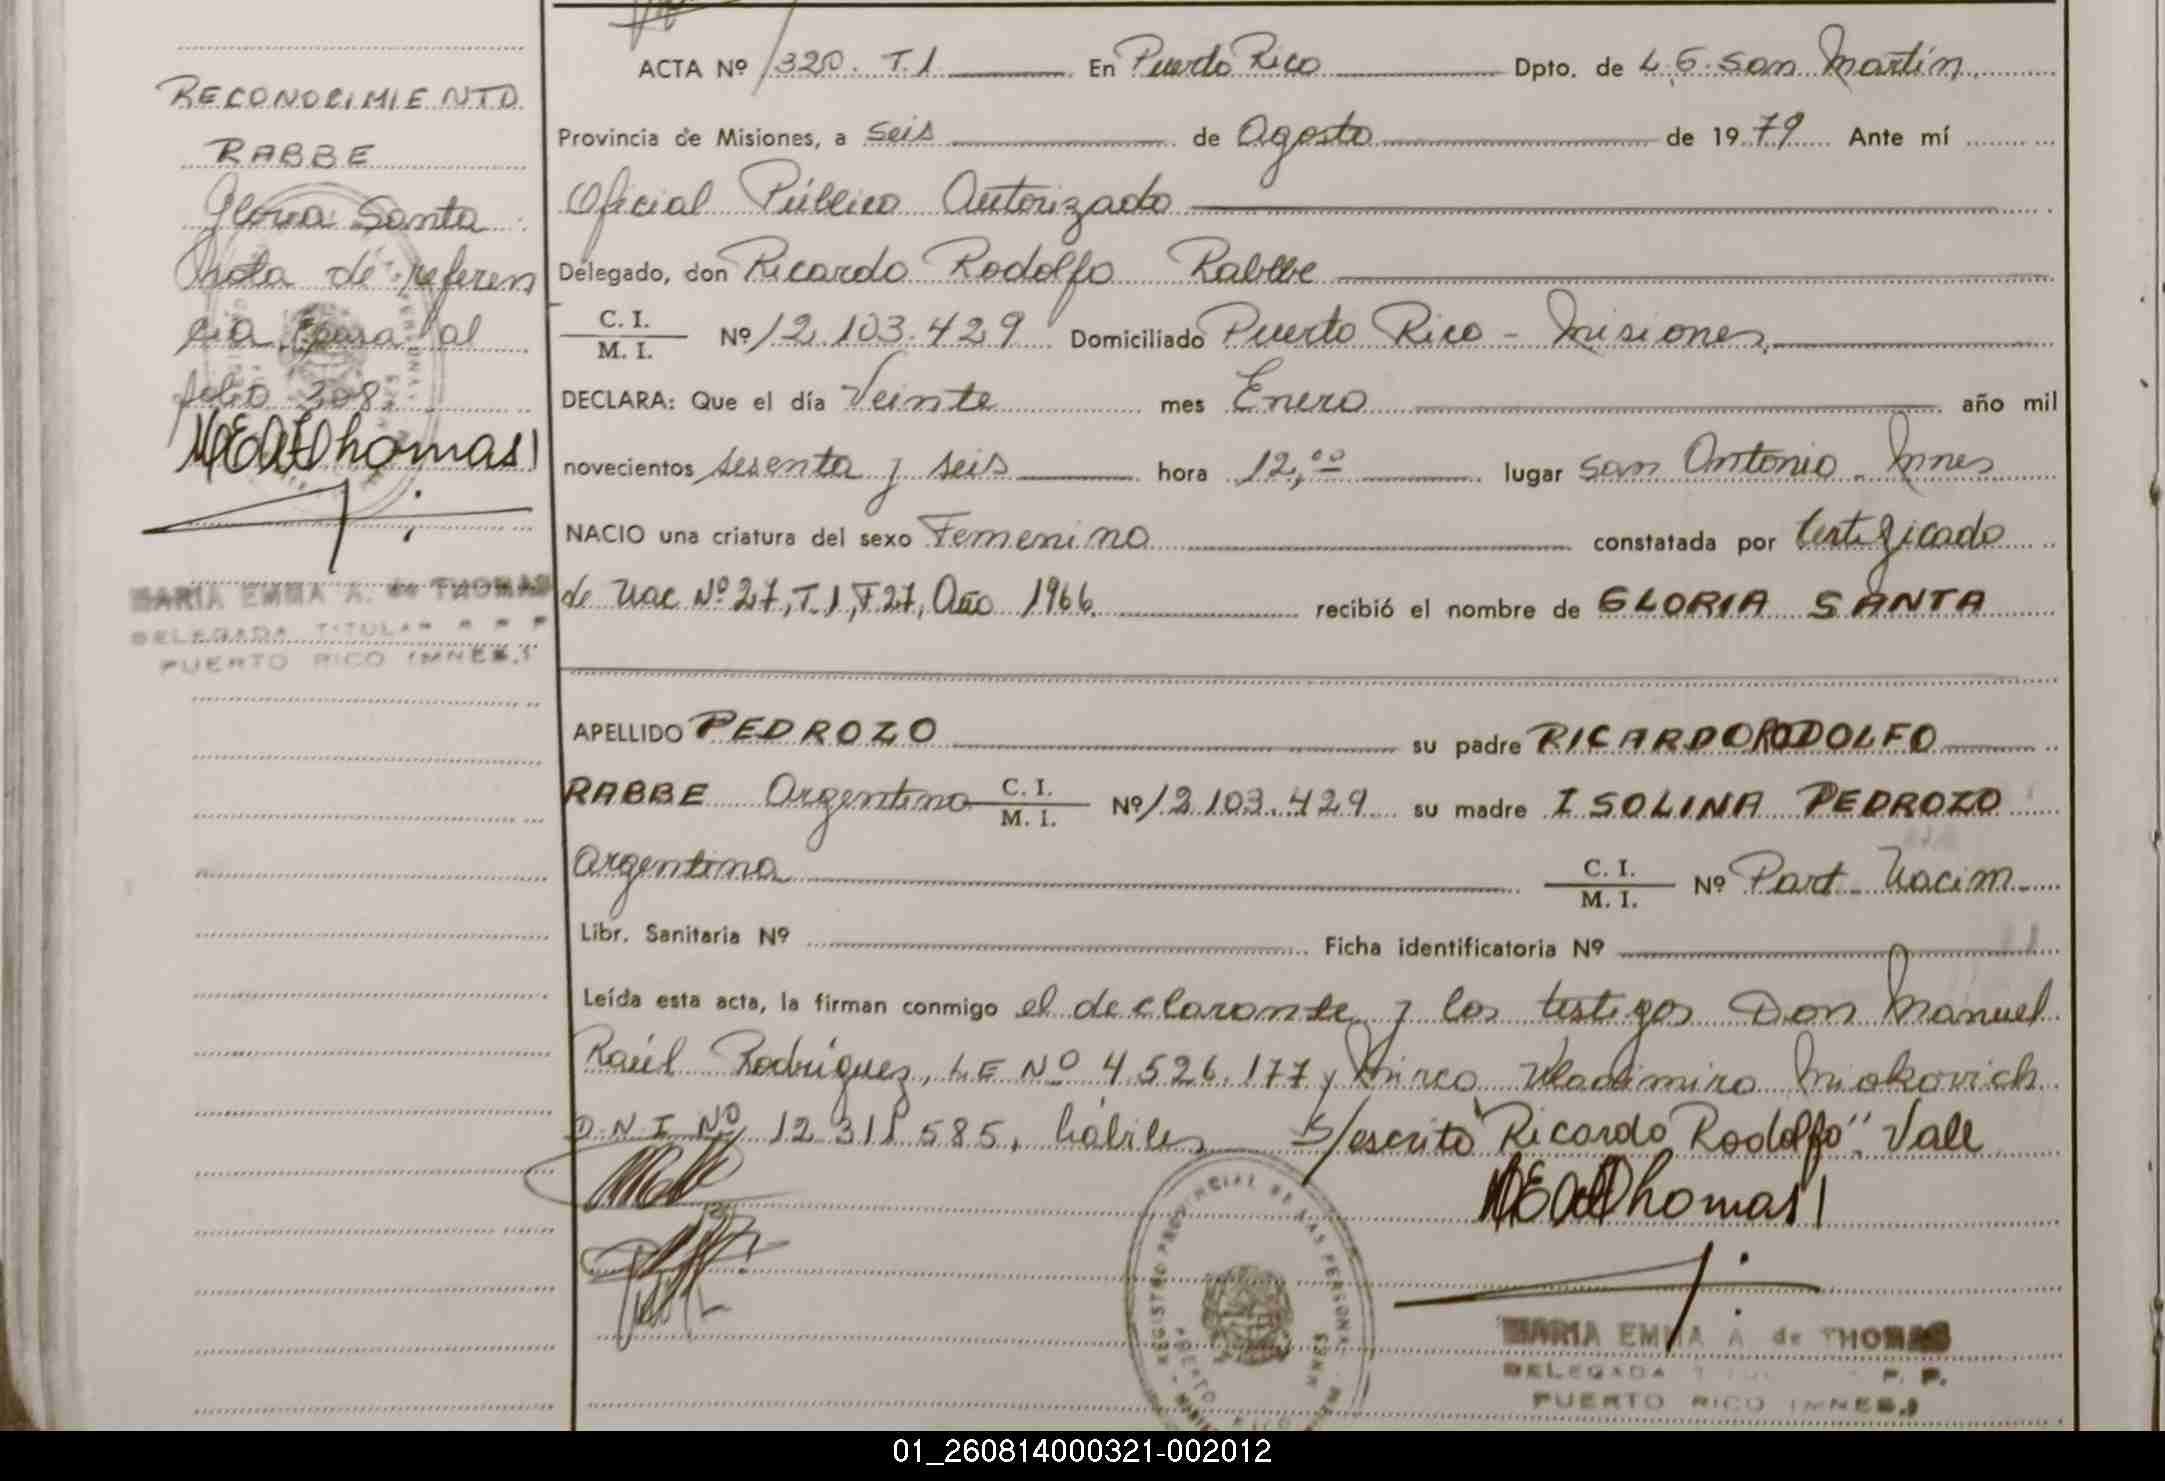 RECONOCIMIENTO
RABBE
Gloria Santa
Nota de referen
cia pasa al
folio 308
MARIA EMMA A. de THOMAS
DELEGADA TITULAR R P P
PUERTO RICO (MNES.)
ACTA Nº 320. T.1 En Puerto Rico Dpto. de L.G. San Martín
Provincia de Misiones, a seis de Agosto de 1979 Ante mí
Oficial Público Autorizado
Delegado, don Ricardo Rodolfo Rabbe
C. I. / M. I. Nº 12.103.429 Domiciliado Puerto Rico - Misiones
DECLARA: Que el día Veinte mes Enero año mil
novecientos sesenta y seis hora 12,00 lugar San Antonio - Mnes
NACIO una criatura del sexo Femenino constatada por Certificado
de Nac Nº 27, T.1, F 27, Año 1966 recibió el nombre de GLORIA SANTA
APELLIDO PEDROZO su padre RICARDO RODOLFO
RABBE Argentino C. I. / M. I. Nº 12.103.429 su madre ISOLINA PEDROZO
Argentina C. I. / M. I. Nº Part. Nacim.
Libr. Sanitaria Nº Ficha identificatoria Nº
Leída esta acta, la firman conmigo el declarante y los testigos Don Manuel
Raúl Rodríguez, LE Nº 4.526.177 y Mirco Vladimiro Miokovich
D.N.I. Nº 12.311.585, hábiles S/escrito "Ricardo Rodolfo". Vale
REGISTRO PROVINCIAL DE LAS PERSONAS
PUERTO RICO
MARIA EMMA A. de THOMAS
DELEGADA P. P.
PUERTO RICO (MNES.)
01_260814000321-002012